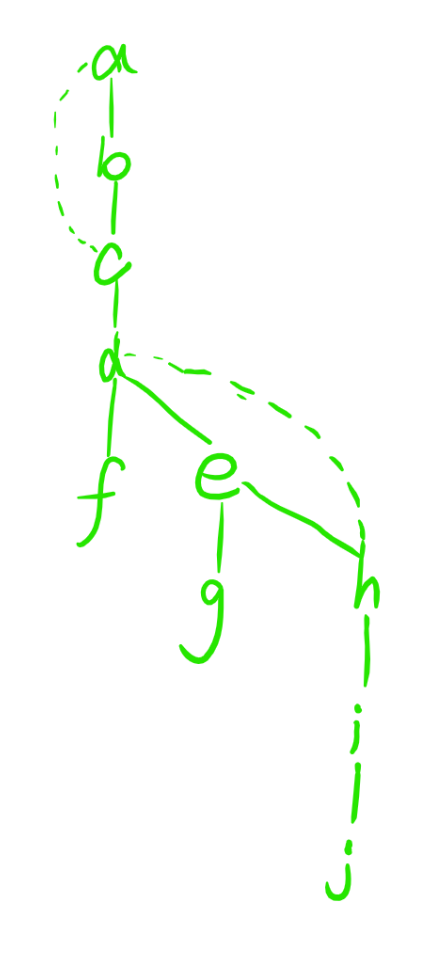 a
b
c
d
f
e
g
h
i
j